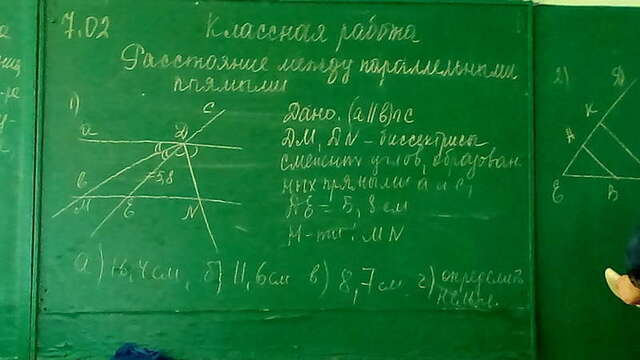 7.02 Классная работа
Расстояние между параллельными
прямыми
1)
c
a
D
b
=5,8
M E N
Дано: (a∥b)∩c
DM, DN - биссектрисы
смежн углов, образован
ных прямыми a и c,
DE = 5,8 см
Н-ти: MN
а) 16,4см, б) 11,6см в) 8,7см г) определить
нельзя.
2)
D
K
A
E B